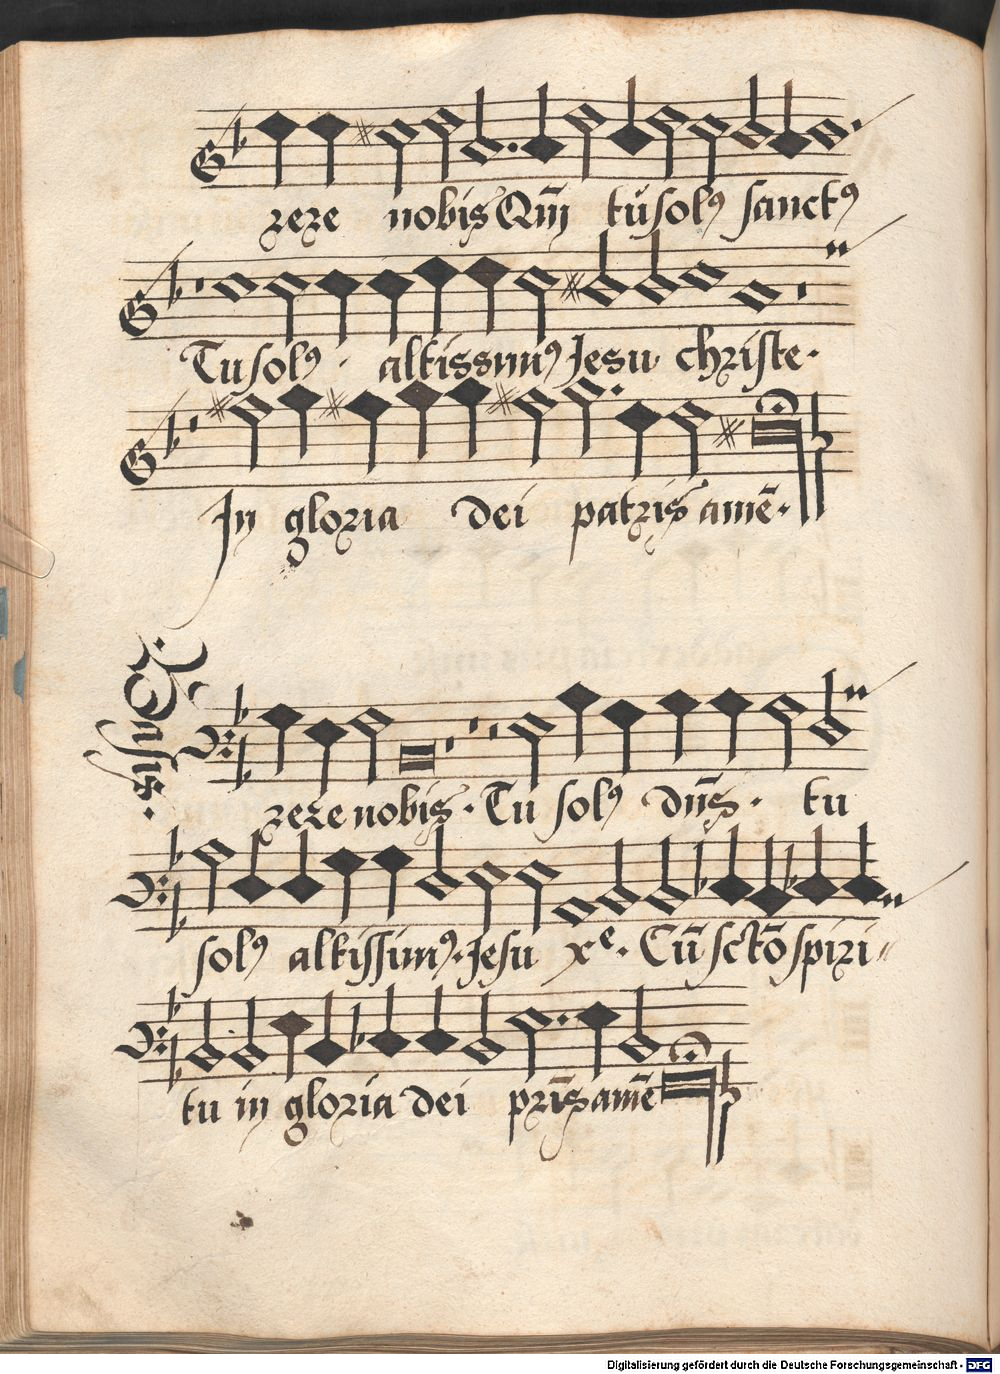 rere nobis Qm̄ tu solꝰ sanctꝰ
Tu solꝰ · altissimꝰ Jesu christe ·
In gloria dei patris amē ·
Basis ·
rere nobis · Tu solꝰ dn̄s · tu
solꝰ altissimꝰ · Jesu xe · Cū sctō spiri〃
tu in gloria dei pr̄is amē
Digitalisierung gefördert durch die Deutsche Forschungsgemeinschaft - DFG